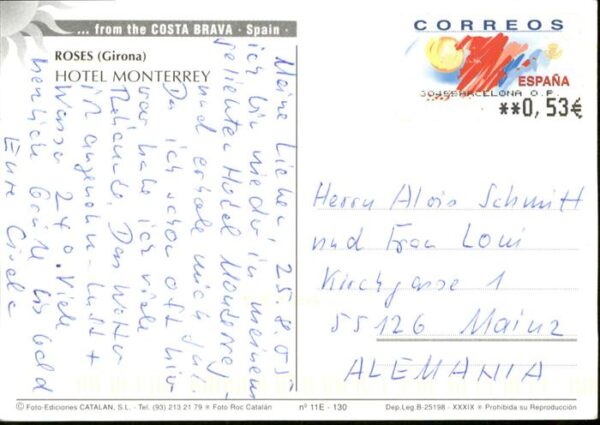 ... from the COSTA BRAVA · Spain ·
ROSES (Girona)
HOTEL MONTERREY
Meine Lieben, 25.8.05
ich bin wieder in meinem
geliebten Hotel Monterrey
und erhole mich gut.
Da ich schon oft hier
war habe ich viele
Bekannte. Das Wetter
ist angenehm - Luft +
Wasser 24°. Viele
herzliche Grüße bis bald
Eure Gisela
CORREOS
ESPAÑA
BARCELONA O.P.
**0,53€
Herrn Alois Schmitt
und Frau Loni
Kirchgasse 1
55126 Mainz
ALEMANIA
© Foto-Ediciones CATALAN, S.L. - Tel. (93) 213 21 79 * Foto Roc Catalán
nº 11E - 130
Dep.Leg.B-25198 - XXXIX * Prohibida su Reproducción